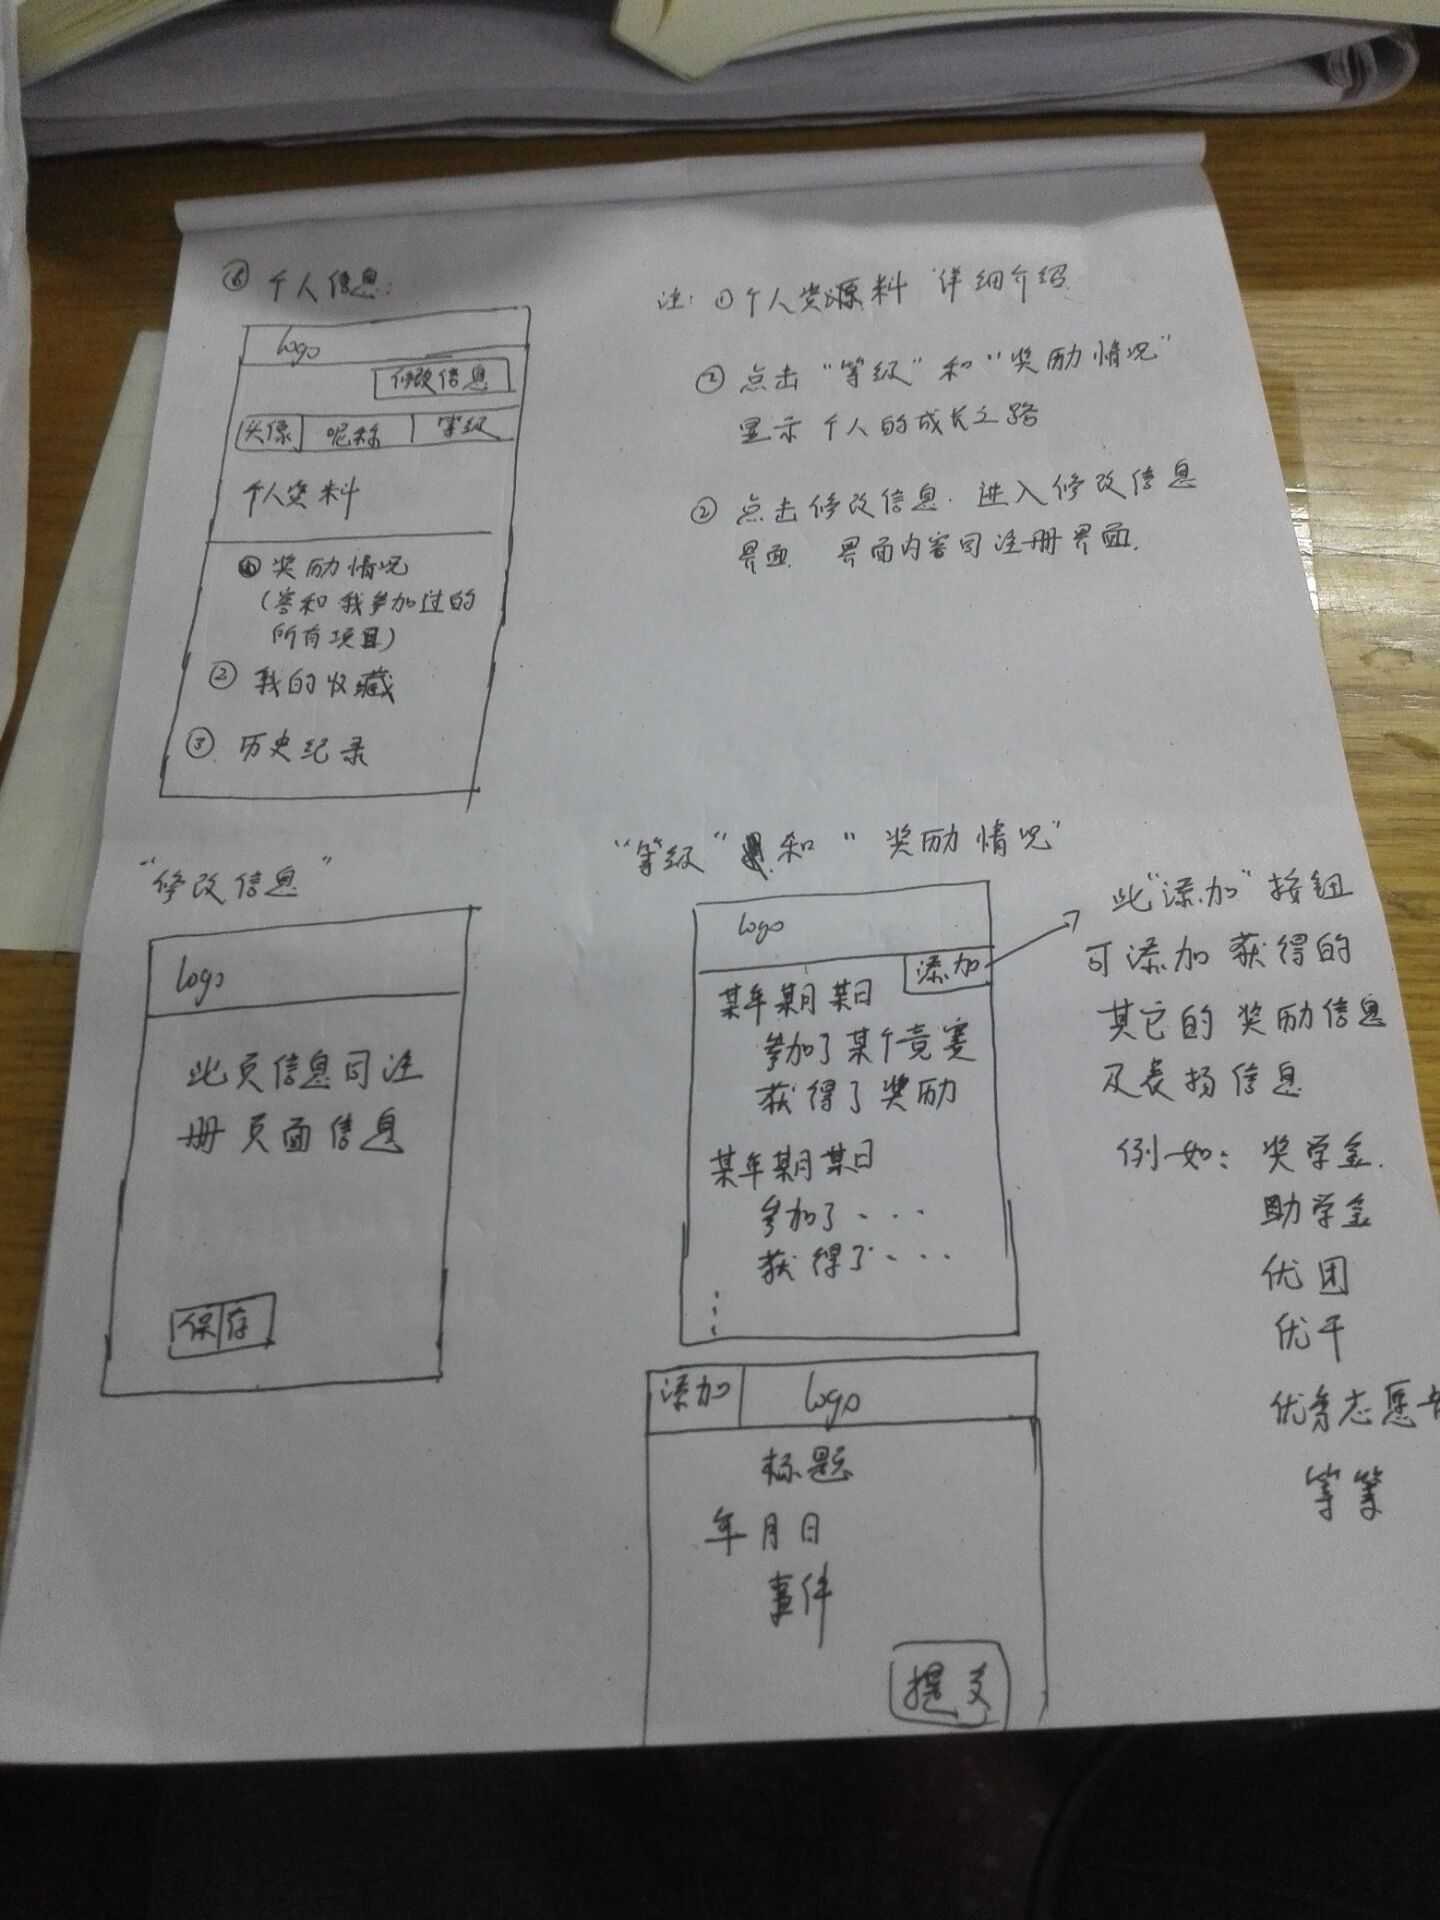 ⑥ 个人信息:
logo
修改信息
头像 昵称 等级
个人资料
① 奖励情况
(答和我参加过的
所有项目)
② 我的收藏
③ 历史纪录
注: ①个人资源料 详细介绍
② 点击“等级”和“奖励情况”
显示个人的成长之路
② 点击修改信息. 进入修改信息
界面. 界面内容同注册界面.
“修改信息”
logo
此页信息同注
册页面信息
保存
“等级”和“奖励情况”
logo
添加
某年某月某日
参加了某个竞赛
获得了奖励
某年某月某日
参加了····
获得了····
此“添加”按钮
可添加获得的
其它的奖励信息
及表扬信息
例如: 奖学金.
助学金
优团
优干
优秀志愿
等等
添加 logo
标题
年月日
事件
提交